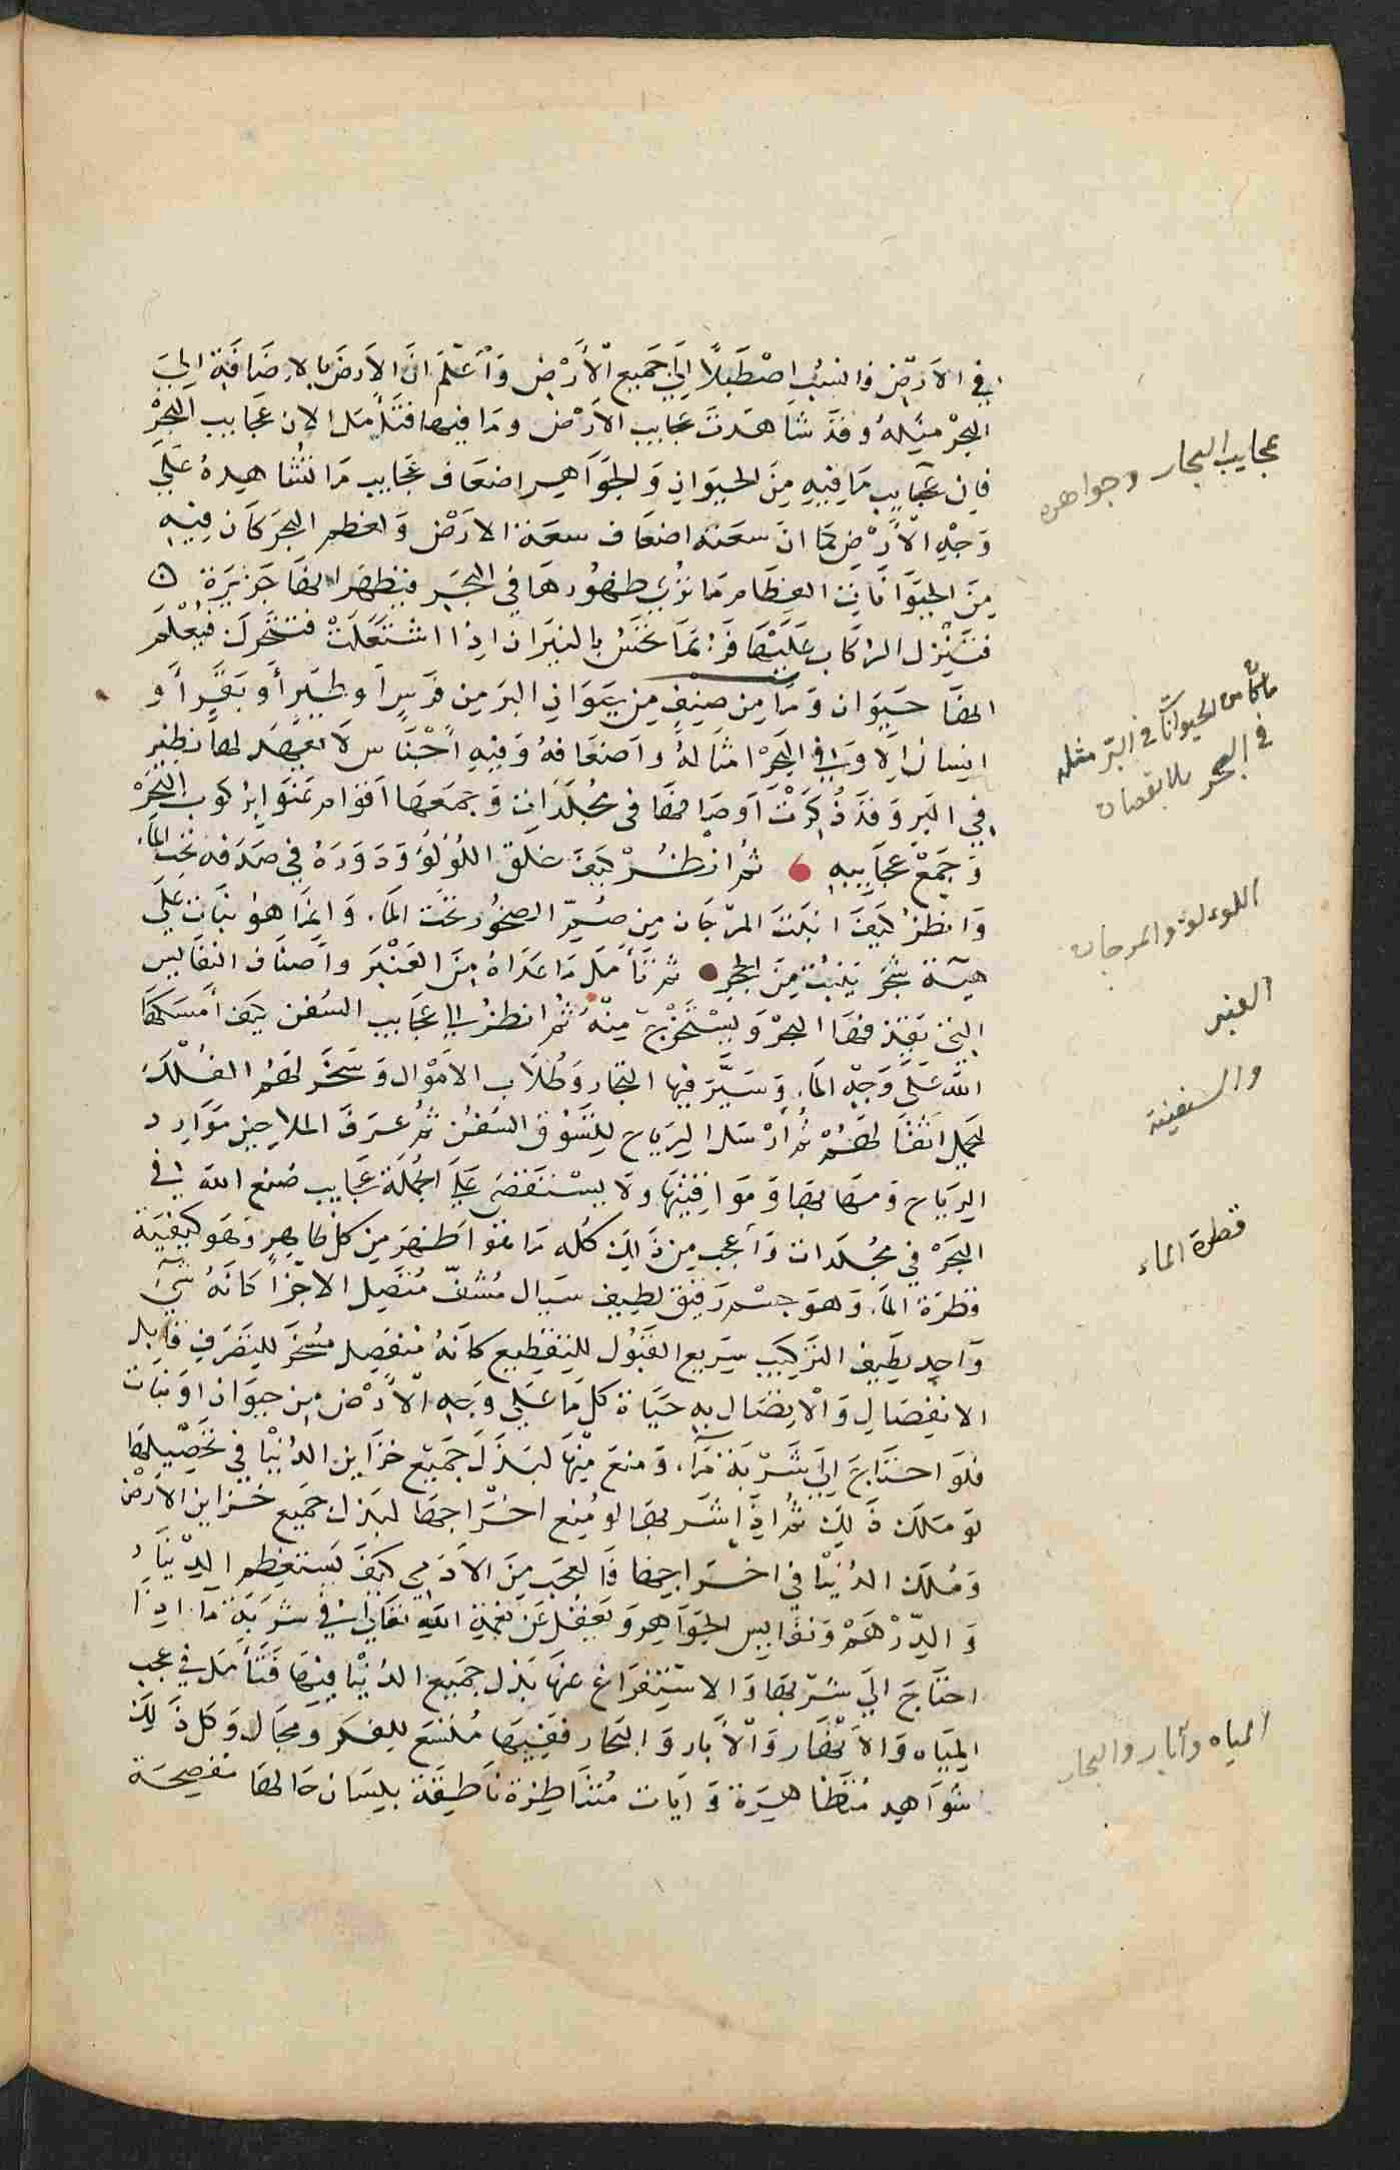 في الارض فانسب اصطبلًا الي جميع الأرض واعلم ان الارض بالاضافة الي
البحر مثله وقد شاهدت عجايب الارض وما فيها فتأمل الان عجايب البحر
فان عجايب ما فيه من الحيوان والجواهر اضعاف عجايب ما تشاهده علي
وجه الارض كما ان سعته اضعاف سعة الارض ولعظم البحر كان فيه
من الحيوانات العظام ما تري ظهورها في البحر فيظهر انها جزيرة
فتنزل الركاب عليها فربما تحس بالنيران اذا اشتعلت فتتحرك فيعلم
انها حيوان وما من صنف من حيوان البر من فرس او طير أو بقر أو
انسان الا وفي البحر امثاله واضعافه وفيه اجناس لا يعهد لها نظير
في البر وقد ذكرت اوصافها في مجلدات وجمعها اقوام عنوا بركوب البحر
وجمع عجايبه ثم انظر كيف خلق اللؤلؤ ودوره في صدفه تحت الماء
وانظر كيف انبت المرجان من صم الصخور تحت الماء وانما هو نبات علي
هيئة شجر ينبت من الحجر ثم تأمل ما عداه من العنبر واصناف النفايس
التي يقذفها البحر ويستخرج منه ثم انظر الي عجايب السفن كيف أمسكها
الله علي وجه الماء وسير فيها التجار وطلاب الاموال وسخر لهم الفلك
لحمل اثقالهم ثم ارسل الرياح لتسوق السفن ثم عرف الملاحين موارد
الرياح ومهابها ومواقيتها ولا يستقصي علي الجملة عجايب صنع الله في
البحر في مجلدات وأعجب من ذلك كله ما هو اظهر من كل ظاهر وهو كيفية
قطرة الماء وهو جسم رقيق لطيف سيال مشف متصل الاجزا كانه شيء
واحد لطيف التركيب سريع القبول للتقطيع كانه منفصل مسخر للتصرف قابل
الانفصال والاتصال به حياة كل ما علي وجه الارض من حيوان او نبات
فلو احتاج الي شربة ماء ومنع منها لبذل جميع خزاين الدنيا في تحصيلها
لو ملك ذلك ثم اذا شربها لو منع اخراجها لبذل جميع خزاين الارض
وملك الدنيا في اخراجها فالعجب من الآدمي كيف يستعظم الدينار
والدرهم ونفايس الجواهر ويغفل عن نعمة الله تعالي في شربة ماء اذا
احتاج الي شربها والاستفراغ عنها بذل جميع الدنيا فيها فتأمل في عجب
المياه والانهار والآبار والبحار ففيها متسع للفكر ومجال وكل ذلك
شواهد متظاهرة وآيات متناظرة ناطقة بلسان حالها مفصحة
عجايب البحار وجواهره
ما من الحيوانات في البر مثله
في البحر بلا نقصان
اللؤلؤ والمرجان
العنبر
والسفينة
قطرة الماء
المياه وآبار والبحار